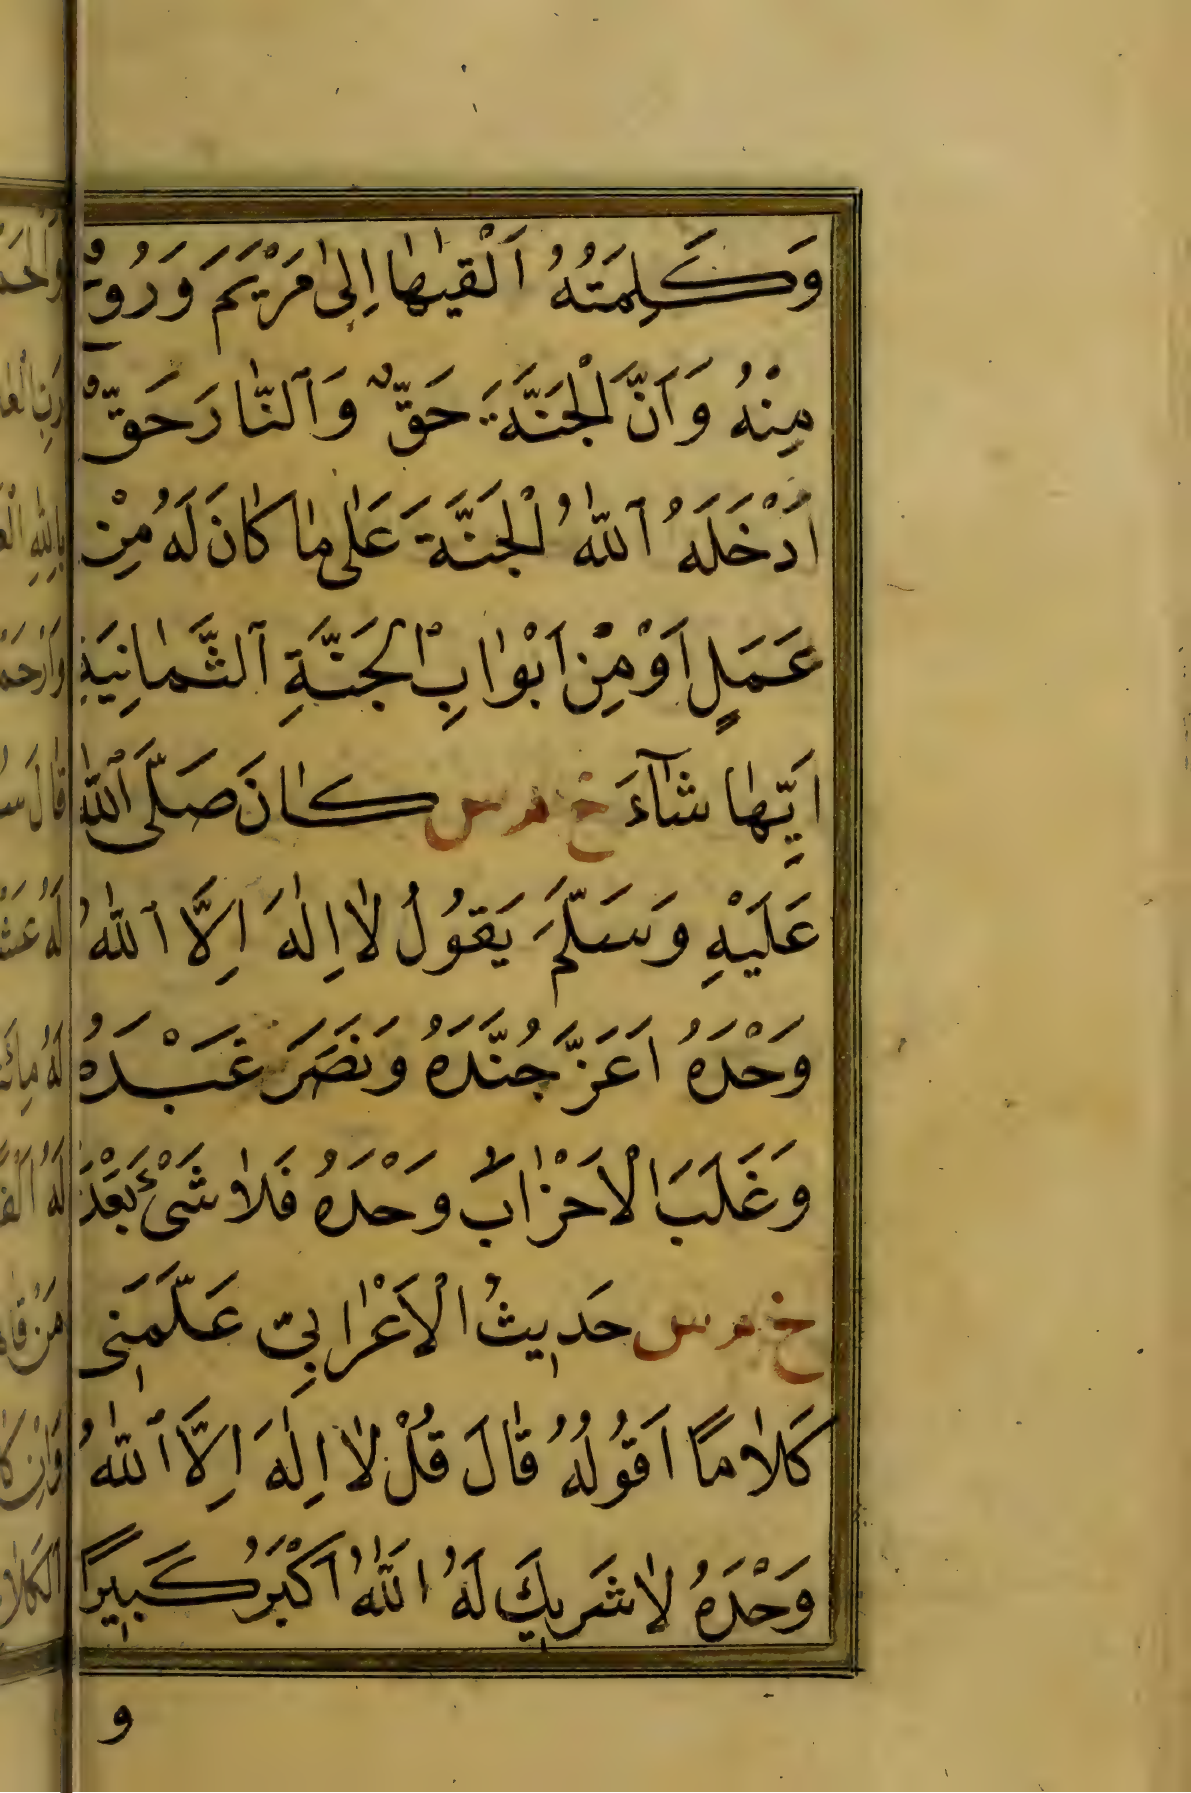 وَكَلِمَتُهُ اَلْقٰيهٰا اِلىٰ مَرْيَمَ وَرُوحٌ
مِنْهُ وَاَنَّ لْجَنَّةَ حَقٌّ وَٱلنّٰارَ حَقٌّ
اَدْخَلَهُ ٱللّٰهُ لْجَنَّةَ عَلٰى مٰا كٰانَ لَهُ مِنْ
عَمَلٍ اَوْ مِنْ اَبْوٰابِ الْجَنَّةِ ٱلثَّمٰانِيَةِ
اَيِّهٰا شٰآءَ خ م س كٰانَ صَلَّى ٱللّٰهُ
عَلَيْهِ وَسَلَّمَ يَقُولُ لٰا اِلٰهَ اِلَّا ٱللّٰهُ
وَحْدَهُ اَعَزَّ جُنْدَهُ وَنَصَرَ عَبْدَهُ
وَغَلَبَ الْاَحْزٰابَ وَحْدَهُ فَلٰا شَىْءَ بَعْدَ
خ م س حَدِيثُ الْاَعْرٰابِىّ عَلِّمْنِى
كَلٰامًا اَقُولُهُ قٰالَ قُلْ لٰا اِلٰهَ اِلَّا ٱللّٰهُ
وَحْدَهُ لٰا شَرِيكَ لَهُ اللّٰهُ اَكْبَرُ كَبِيرًا
و